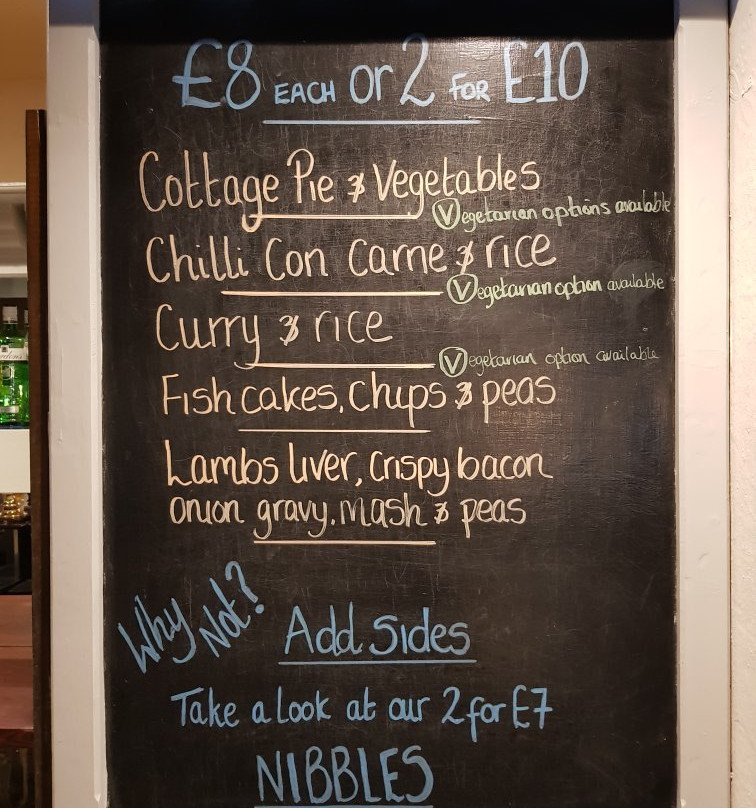 £8 EACH or 2 FOR £10
Cottage Pie & Vegetables
Vegetarian options available
Chilli Con Carne & rice
Vegetarian option available
Curry & rice
Vegetarian option available
Fishcakes, Chips & peas
Lambs liver, Crispy bacon
onion gravy, mash & peas
Why Not?
Add Sides
Take a look at our 2 for £7
NIBBLES